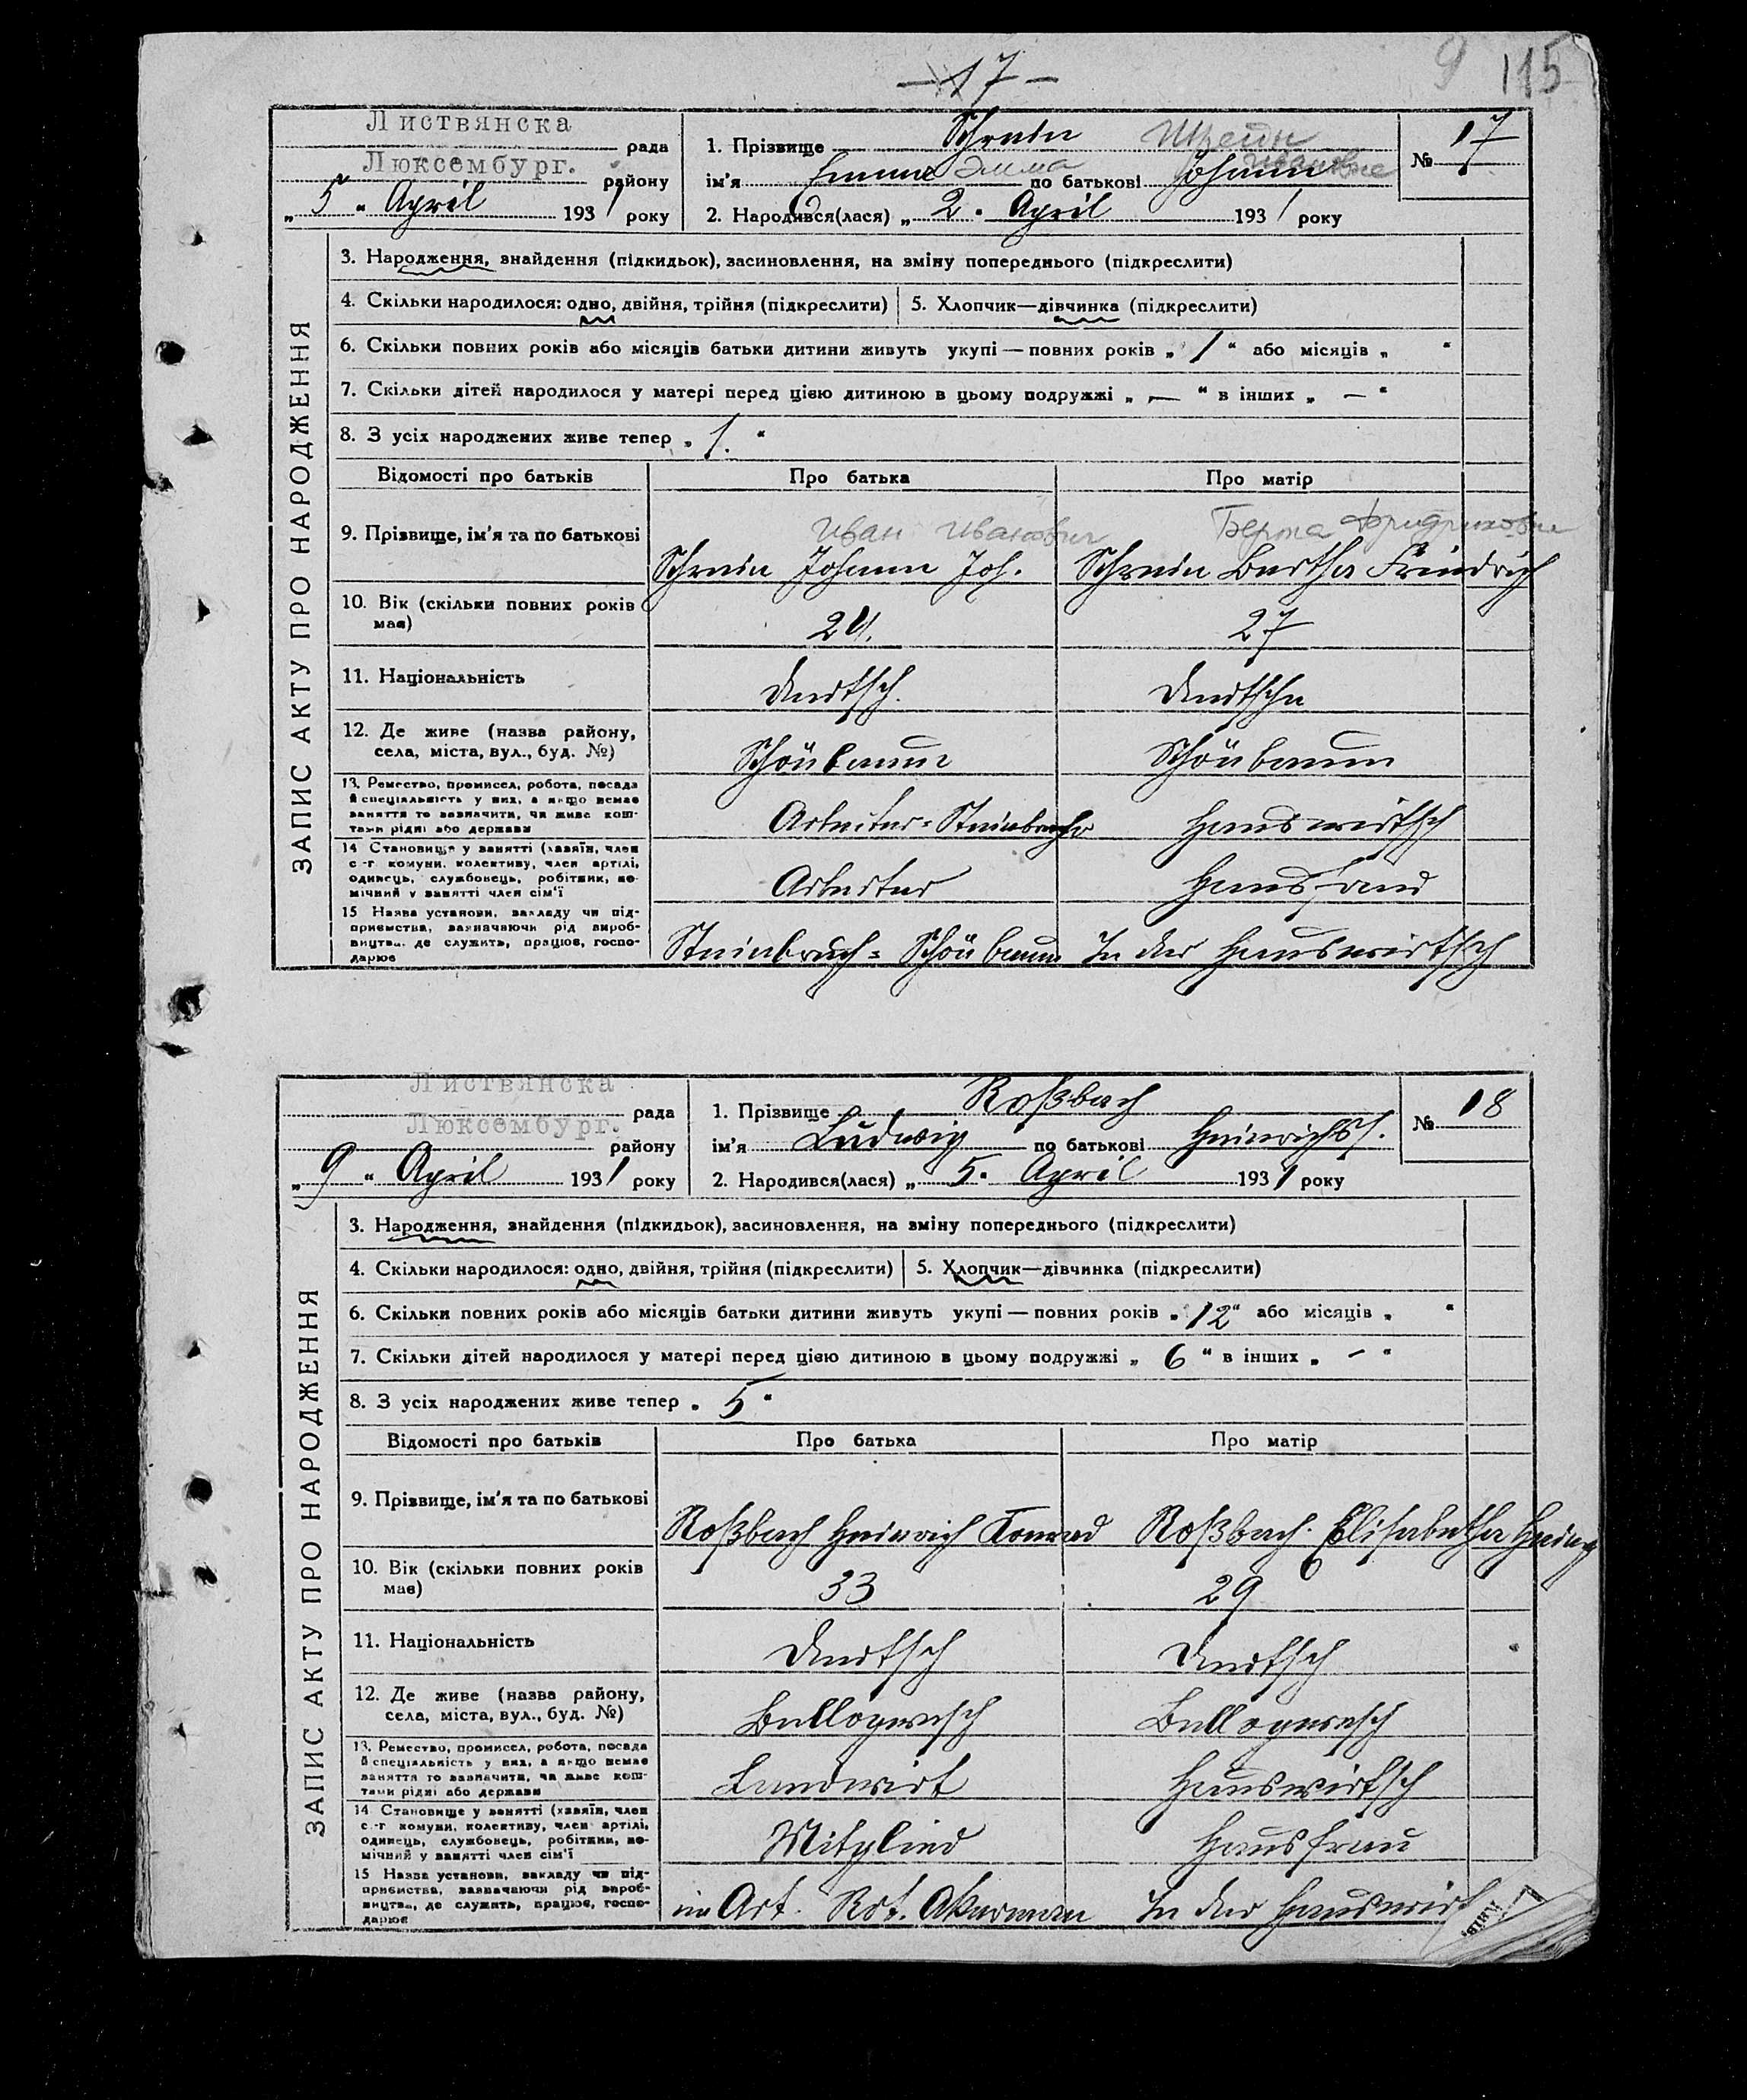 — 17 —
9 115
Листвянска рада
Люксембург. району
„ 5 “ April 1931 року
1. Прізвище Schrein Шреин
ім'я Emma Эмма по батькові Johann Ивановне
2. Народився(лася) „ 2. April 1931 року
№ 17
ЗАПИС АКТУ ПРО НАРОДЖЕННЯ
3. Народження, знайдення (підкидьок), засиновлення, на зміну попереднього (підкреслити)
4. Скільки народилося: одно, двійня, трійня (підкреслити) 5. Хлопчик—дівчинка (підкреслити)
6. Скільки повних років або місяців батьки дитини живуть укупі — повних років „ 1 “ або місяців „ “
7. Скільки дітей народилося у матері перед цією дитиною в цьому подружжі „ — “ в інших „ — “
8. З усіх народжених живе тепер „ 1. “
Відомості про батьків Про батька Про матір
Иван Иванович Берта Фридриховне
9. Прізвище, ім'я та по батькові Schrein Johann Joh. Schrein Bertha Friedrich
10. Вік (скільки повних років має) 24. 27
11. Національність Deutsch. Deutsche
12. Де живе (назва району, Schönbaum Schönbaum
села, міста, вул., буд. №)
13. Ремество, промисел, робота, посада
й спеціальність у них, а якщо немає Arbeiter=Steinbruch Hauswirtsch
заняття то зазначити, чи живе кош-
тами рідні або держави
14 Становище у занятті (хазяїн, член
с.-г комуни, колективу, член артілі, Arbeiter Hausfrau
одинець, службовець, робітник, по-
мічний у занятті член сім'ї
15 Назва установи, закладу чи під-
приємства, зазначаючи рід вироб-
ництва, де служить, працює, госпо- Steinbruch=Schönbaum In der Hauswirtsch
дарює
Листвянска рада
Люксембург. району
„ 9 “ April 1931 року
1. Прізвище Roßbach
ім'я Ludwig по батькові Heinrichs.
2. Народився(лася) „ 5. April 1931 року
№ 18
ЗАПИС АКТУ ПРО НАРОДЖЕННЯ
3. Народження, знайдення (підкидьок), засиновлення, на зміну попереднього (підкреслити)
4. Скільки народилося: одно, двійня, трійня (підкреслити) 5. Хлопчик—дівчинка (підкреслити)
6. Скільки повних років або місяців батьки дитини живуть укупі — повних років „ 12 “ або місяців „ “
7. Скільки дітей народилося у матері перед цією дитиною в цьому подружжі „ 6 “ в інших „ — “
8. З усіх народжених живе тепер „ 5 “
Відомості про батьків Про батька Про матір
9. Прізвище, ім'я та по батькові Roßbach Heinrich Konrad Roßbach. Elisabetha
10. Вік (скільки повних років має) 33 29
11. Національність Deutsch Deutsch
12. Де живе (назва району, Bellogwesch Bellogwesch
села, міста, вул., буд. №)
13. Ремество, промисел, робота, посада
й спеціальність у них, а якщо немає Landwirt Hauswirtsch
заняття то зазначити, чи живе кош-
тами рідні або держави
14 Становище у занятті (хазяїн, член
с.-г комуни, колективу, член артілі, Mitglied Hausfrau
одинець, службовець, робітник, по-
мічний у занятті член сім'ї
15 Назва установи, закладу чи під-
приємства, зазначаючи рід вироб-
ництва, де служить, працює, госпо- im Art. Rot. Akerman In der Hauswirt
дарює